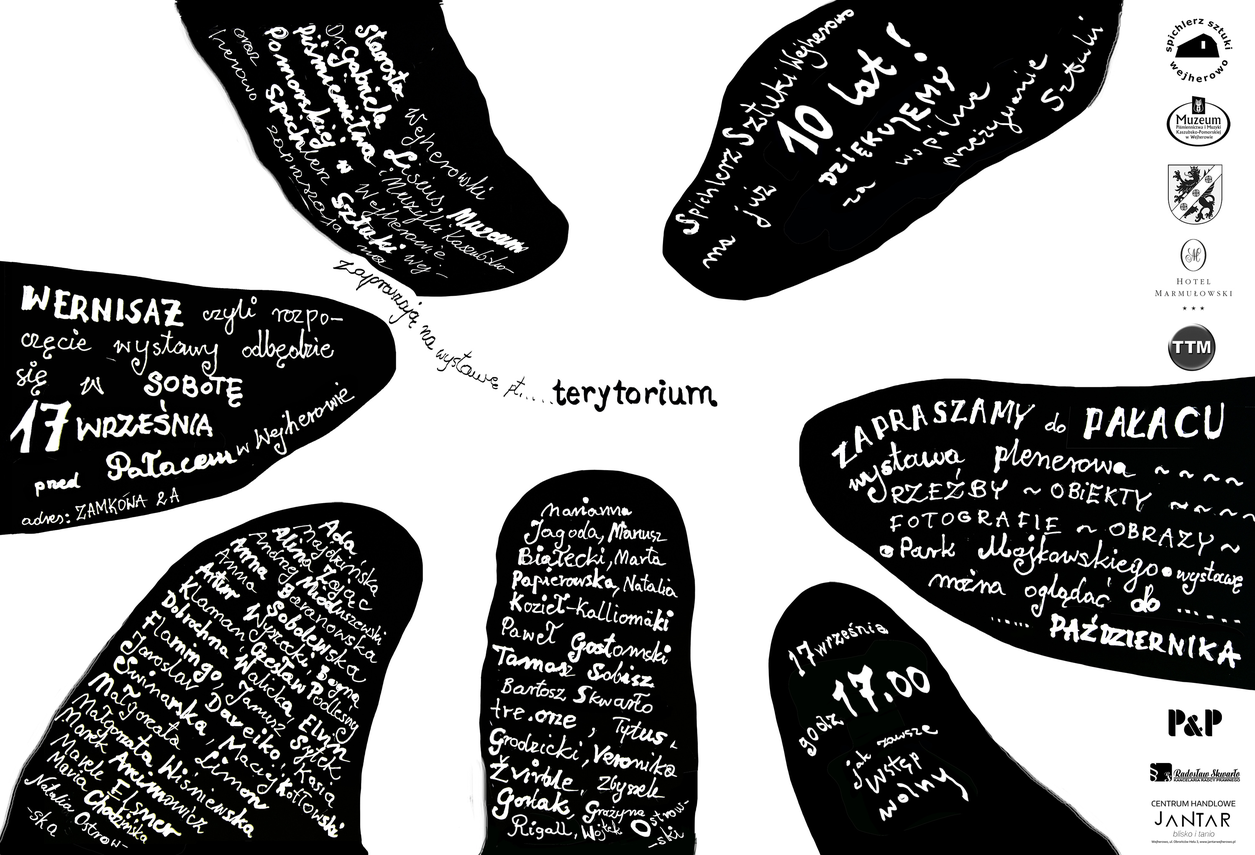 Starosta Wejherowski
Dr Gabriela Lisius, Muzeum
Piśmiennictwa i Muzyki Kaszubsko-
Pomorskiej w Wejherowie
oraz Spichlerz Sztuki Wej-
herowo zapraszają na
zapraszają na wystawę pt.....
terytorium
Spichlerz Sztuki Wejherowo
ma już 10 lat!
DZIĘKUJEMY
za wspólne
przeżywanie
Sztuki
WERNISAŻ czyli rozpo-
częcie wystawy odbędzie
się w SOBOTĘ
17 WRZEŚNIA
pred Pałacem w Wejherowie
adres: ZAMKOWA 2A
ZAPRASZAMY do PAŁACU
wystawa plenerowa ~~~~
RZEŹBY ~ OBIEKTY ~~~~
FOTOGRAFIE ~ OBRAZY ~
• Park Majkowskiego • wystawę
można oglądać do ....
...... PAŹDZIERNIKA
Ada Majdzińska
Alina Zając
Andrzej Mieduszewski
Anna Baranowska
Anna Sobolewska
Artur Wyszecki Bogna
Klaman Czesław Podlesny
Dobrochna Walicka, Elvin
Flamingo, Janusz Sytek
Jarosław Daveiko, Kasia
Swinarska, Maciej Kotłowski
Małgorzata Limon
Małgorzata Wiśniewska
Marek Arcimowicz
Marek Elsner
Maria Chodzińska
Natalia Ostrow-
-ska
marianna
Jagoda, Mariusz
Białecki, Marta
Papierowska, Natalia
Kozieł-Kalliomäki
Paweł Gostomski
Tamasz Sobisz
Bartosz Skwarło
tre.one, Tytus.
Grodzicki, Weronika
Żvirble, Zbyszek
Gorlak, Grażyna
Rigall, Wojtek Ostrow-
-ski
17 września
godz. 17.00
jak zawsze
wstęp
wolny
spichlerz sztuki
wejherowo
Muzeum
Piśmiennictwa i Muzyki
Kaszubsko-Pomorskiej
w Wejherowie
HOTEL
MARMUŁOWSKI
TTM
P&P
Radosław Skwarło
KANCELARIA RADCY PRAWNEGO
CENTRUM HANDLOWE
JANTAR
blisko i tanio